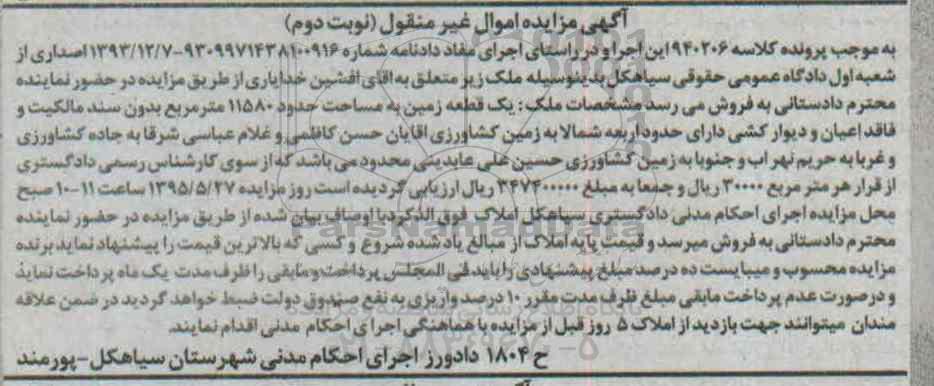 آگهی مزایده اموال غیر منقول (نوبت دوم)
به موجب پرونده کلاسه ۹۴۰۲۰۶ این اجرا و در راستای اجرای مفاد دادنامه شماره ۹۳۰۹۹۷۱۴۳۸۱۰۰۹۱۶-۱۳۹۳/۱۲/۷ اصداری از
شعبه اول دادگاه عمومی حقوقی سیاهکل بدینوسیله ملک زیر متعلق به اقای افشین خدایاری از طریق مزایده در حضور نماینده
محترم دادستانی به فروش می رسد مشخصات ملک: یک قطعه زمین به مساحت حدود ۱۱۵۸۰ مترمربع بدون سند مالکیت و
فاقد اعیان و دیوار کشی دارای حدود اربعه شمالا به زمین کشاورزی اقایان حسن کاظمی و غلام عباسی شرقا به جاده کشاورزی
و غربا به حریم نهر اب و جنوبا به زمین کشاورزی حسین علی عابدینی محدود می باشد که از سوی کارشناس رسمی دادگستری
از قرار هر متر مربع ۳۰۰۰۰ ریال و جمعا به مبلغ ۳۴۷۴۰۰۰۰۰ ریال ارزیابی گردیده است روز مزایده ۱۳۹۵/۵/۲۷ ساعت ۱۱-۱۰ صبح
محل مزایده اجرای احکام مدنی دادگستری سیاهکل املاک فوق الذکر با اوصاف بیان شده از طریق مزایده در حضور نماینده
محترم دادستانی به فروش میرسد و قیمت پایه املاک از مبالغ یاد شده شروع و کسی که بالاترین قیمت را پیشنهاد نماید برنده
مزایده محسوب و میبایست ده درصد مبلغ پیشنهادی را باید فی المجلس پرداخت و مابقی را ظرف مدت یک ماه پرداخت نماید
و در صورت عدم پرداخت مابقی مبلغ ظرف مدت مقرر ۱۰ درصد واریزی به نفع صندوق دولت ضبط خواهد گردید در ضمن علاقه
مندان میتوانند جهت بازدید از املاک ۵ روز قبل از مزایده با هماهنگی اجرای احکام مدنی اقدام نمایند.
ح ۱۸۰۴ دادورز اجرای احکام مدنی شهرستان سیاهکل-پورمند
ParsNamadData